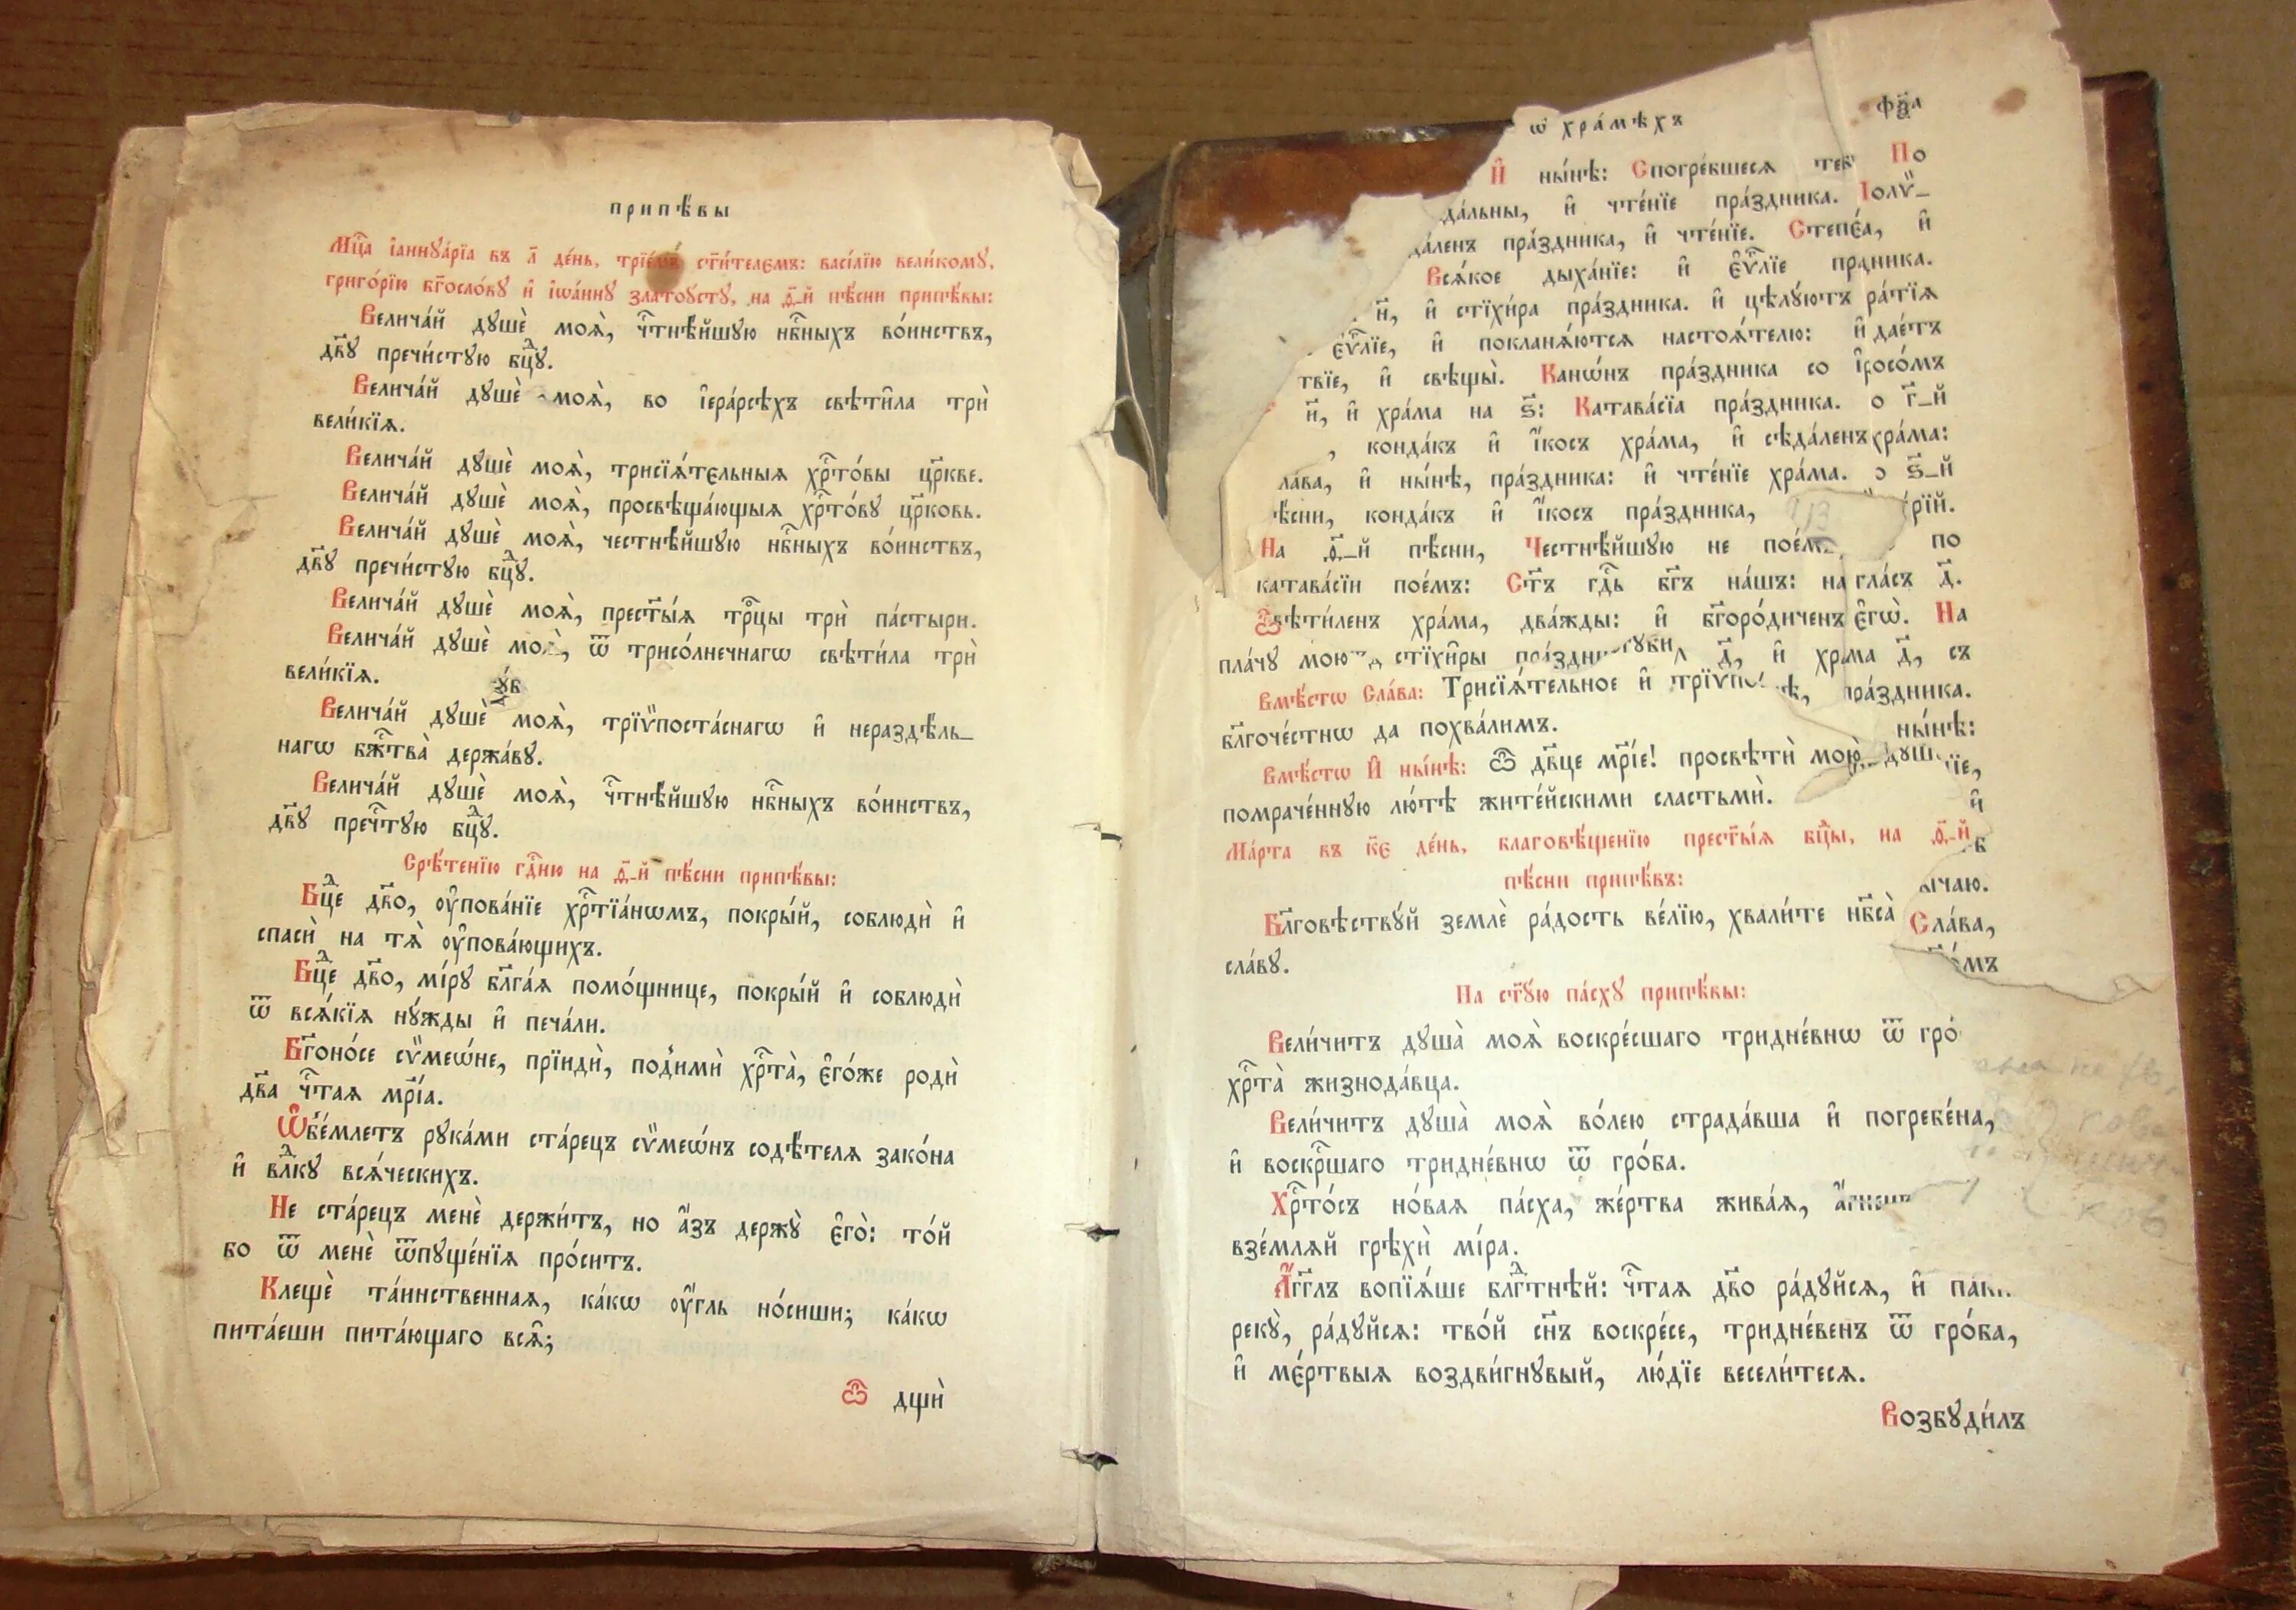 припѣ́вы
Мцⷭ҇а і҆аннꙋа́рїа въ л҃ де́нь, трїе́мъ ст҃и́телємъ: васі́лїю вели́комꙋ,
григо́рїю бг҃осло́вꙋ и҆ і҆ѡа́ннꙋ златоꙋстꙋ, на ѳ҃_й пѣ́сни припѣ́вы:
Велича́й дꙋшѐ моѧ̀, чⷭ҇тнѣ́йшꙋю нбⷭ҇ныхъ во́инствъ,
дв҃ꙋ пречи́стꙋю бцⷣꙋ.
Велича́й дꙋшѐ моѧ̀, во і҆ера́рсѣхъ свѣти̑ла трѝ
вели́кїѧ.
Велича́й дꙋшѐ моѧ̀, трисїѧ́тєльныѧ хрⷭ҇то́вы цр҃кве.
Велича́й дꙋшѐ моѧ̀, просвѣща́ющыѧ хрⷭ҇то́вꙋ цр҃ковь.
Велича́й дꙋшѐ моѧ̀, честнѣ́йшꙋю нбⷭ҇ныхъ во́инствъ,
дв҃ꙋ пречи́стꙋю бцⷣꙋ.
Велича́й дꙋшѐ моѧ̀, прест҃ы́ѧ трⷪ҇цы трѝ па́стыри.
Велича́й дꙋшѐ мо, ѿ трисо́лнечнагѡ свѣти́ла трѝ
вели́кїѧ.
Велича́й дꙋшѐ моѧ̀, трїѷпоста́снагѡ и҆ нераздѣ́ль_
нагѡ бжⷭ҇тва̀ держа́вꙋ.
Велича́й дꙋшѐ моѧ̀, чⷭ҇тнѣ́йшꙋю нбⷭ҇ныхъ во́инствъ,
дв҃ꙋ пречⷭ҇тꙋю бцⷣꙋ.
Срѣ́тенїю гдⷭ҇ню на ѳ҃_й пѣ́сни припѣ́вы:
Бцⷣе дв҃о, ᲂу҆пова́нїе хрⷭ҇тїа́нѡмъ, покры́й, соблюдѝ и҆
спасѝ на тѧ̀ ᲂу҆пова́ющихъ.
Бцⷣе дв҃о, мі́рꙋ бл҃га́ѧ помо́щнице, покры́й и҆ соблюдѝ
ѿ всѧ́кїѧ нꙋ́жды и҆ печа́ли.
Бг҃оно́се сѷмеѡ́не, прїидѝ, подимѝ хрⷭ҇та̀, є҆го́же родѝ
дв҃а чⷭ҇таѧ мр҃і́а.
Ѡ҆б̾е́млетъ рꙋка́ми ста́рецъ сѷмеѡ́нъ содѣ́телѧ зако́на
и҆ влⷣкꙋ всѧ́ческихъ.
Не ста́рецъ менѐ держи́тъ, но а҆́зъ держꙋ̀ є҆го̀: то́й
бо ѿ менѐ ѿпꙋще́нїѧ про́ситъ.
Клещѐ та́инственнаѧ, ка́кѡ ᲂу҆́гль но́сиши; ка́кѡ
пита́еши пита́ющаго всѧ̑;
Ѽ дщѝ
ѡ҆ хра́мѣхъ
И҆ ны́нѣ: Спогре́бшесѧ По
да́льны, и҆ чте́нїе пра́здника.
да́ленъ пра́здника, и҆ чте́нїе. Степє́на, и҆
Всѧ́кое дыха́нїе: и҆ є҆ѵⷢ҇лїе
и҆ стїхи́ра пра́здника. и҆ цѣлꙋ́ютъ
є҆ѵⷢ҇лїе, и҆ покланѧ́ютсѧ настоѧ́телю: и҆ дае́тъ
и҆ свѣщы̀. Канѡ́нъ пра́здника со
и҆ хра́ма на ѕ҃: Катава́сїа пра́здника. г҃_й
конда́къ и҆ і҆́косъ хра́ма, и҆ сѣда́ленъ хра́ма:
и҆ ны́нѣ, пра́здника: и҆ чте́нїе хра́ма. ѕ҃_й
конда́къ и҆ і҆́косъ пра́здника,
На ѳ҃_й пѣ́сни, Честнѣ́йшꙋю не по
катава́сїи пое́мъ: Ст҃ъ гдⷭ҇ь бг҃ъ на́шъ: на гла́съ д҃.
хра́ма, два́жды: и҆ бг҃оро́диченъ є҆гѡ̀. На
стїхи̑ры д҃, и҆ д҃, съ
пра́здника.
Вмѣ́стѡ Сла́ва: Трисїѧ́тельное и҆
бл҃гоче́стнѡ да похва́лимъ.
ны́нѣ:
Вмѣ́стѡ И҆ ны́нѣ: Ѽ дв҃це мр҃і́е! просвѣтѝ мою̀
помраче́ннꙋю лю́тѣ жите́йскими сластьмѝ.
и҆
Ма́рта въ к҃є де́нь, благовѣ́щенїю прест҃ы́ѧ бцⷣы, на ѳ҃_й
пѣ́сни припѣ́въ:
Бл҃говѣствꙋ́й землѐ ра́дость ве́лїю, хвали́те нб҃са̀
Сла́ва,
сла́вꙋ.
На ст҃ꙋ́ю па́схꙋ припѣ́вы:
Вели́читъ дꙋша̀ моѧ̀ воскре́сшаго тридне́внѡ ѿ гро́
хрⷭ҇та̀ жизнода́вца.
Вели́читъ дꙋша̀ моѧ̀ во́лею страда́вша и҆ погребе́на,
и҆ воскрⷭ҇шаго тридне́внѡ ѿ гро́ба.
Хрⷭ҇то́съ но́ваѧ па́сха, же́ртва жива́ѧ,
взе́млѧй грѣхѝ мі́ра.
А҆́гг҃лъ вопїѧ́ше блгⷣтнѣй: чⷭ҇таѧ дв҃о ра́дꙋйсѧ, и҆
рекꙋ̀, ра́дꙋйсѧ: тво́й сн҃ъ воскре́се, тридне́венъ ѿ гро́ба,
и҆ мє́ртвыѧ воздви́гнꙋвый, лю́дїе весели́тесѧ.
Возбꙋди́лъ